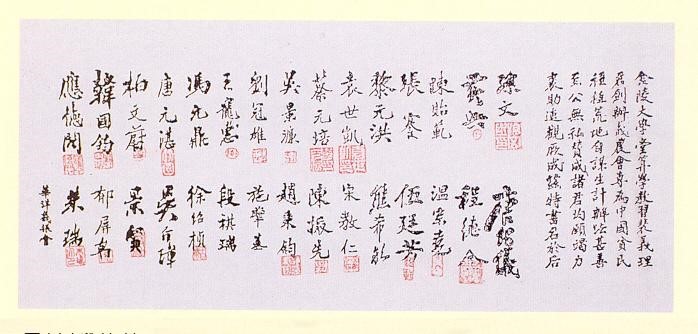 金陵大學堂算學教習裴義理
君創辦義農會專為中國貧民
種植荒地自謀生計辦法甚善
至公無私贊成諸君均願竭力
襄助進觀厥成茲特書名於后
孫文 唐紹儀
黃興 程德全
陳貽範 溫宗堯
張謇 伍廷芳
黎元洪 熊希齡
袁世凱 宋教仁
蔡元培 陳振先
吳景濂 趙秉鈞
劉冠雄 施肇基
王寵惠 段祺瑞
馮元鼎 徐紹楨
唐元湛 吳介璋
柏文蔚
韓國鈞 郁屏翰
應德閎 朱瑞
華洋義賑會